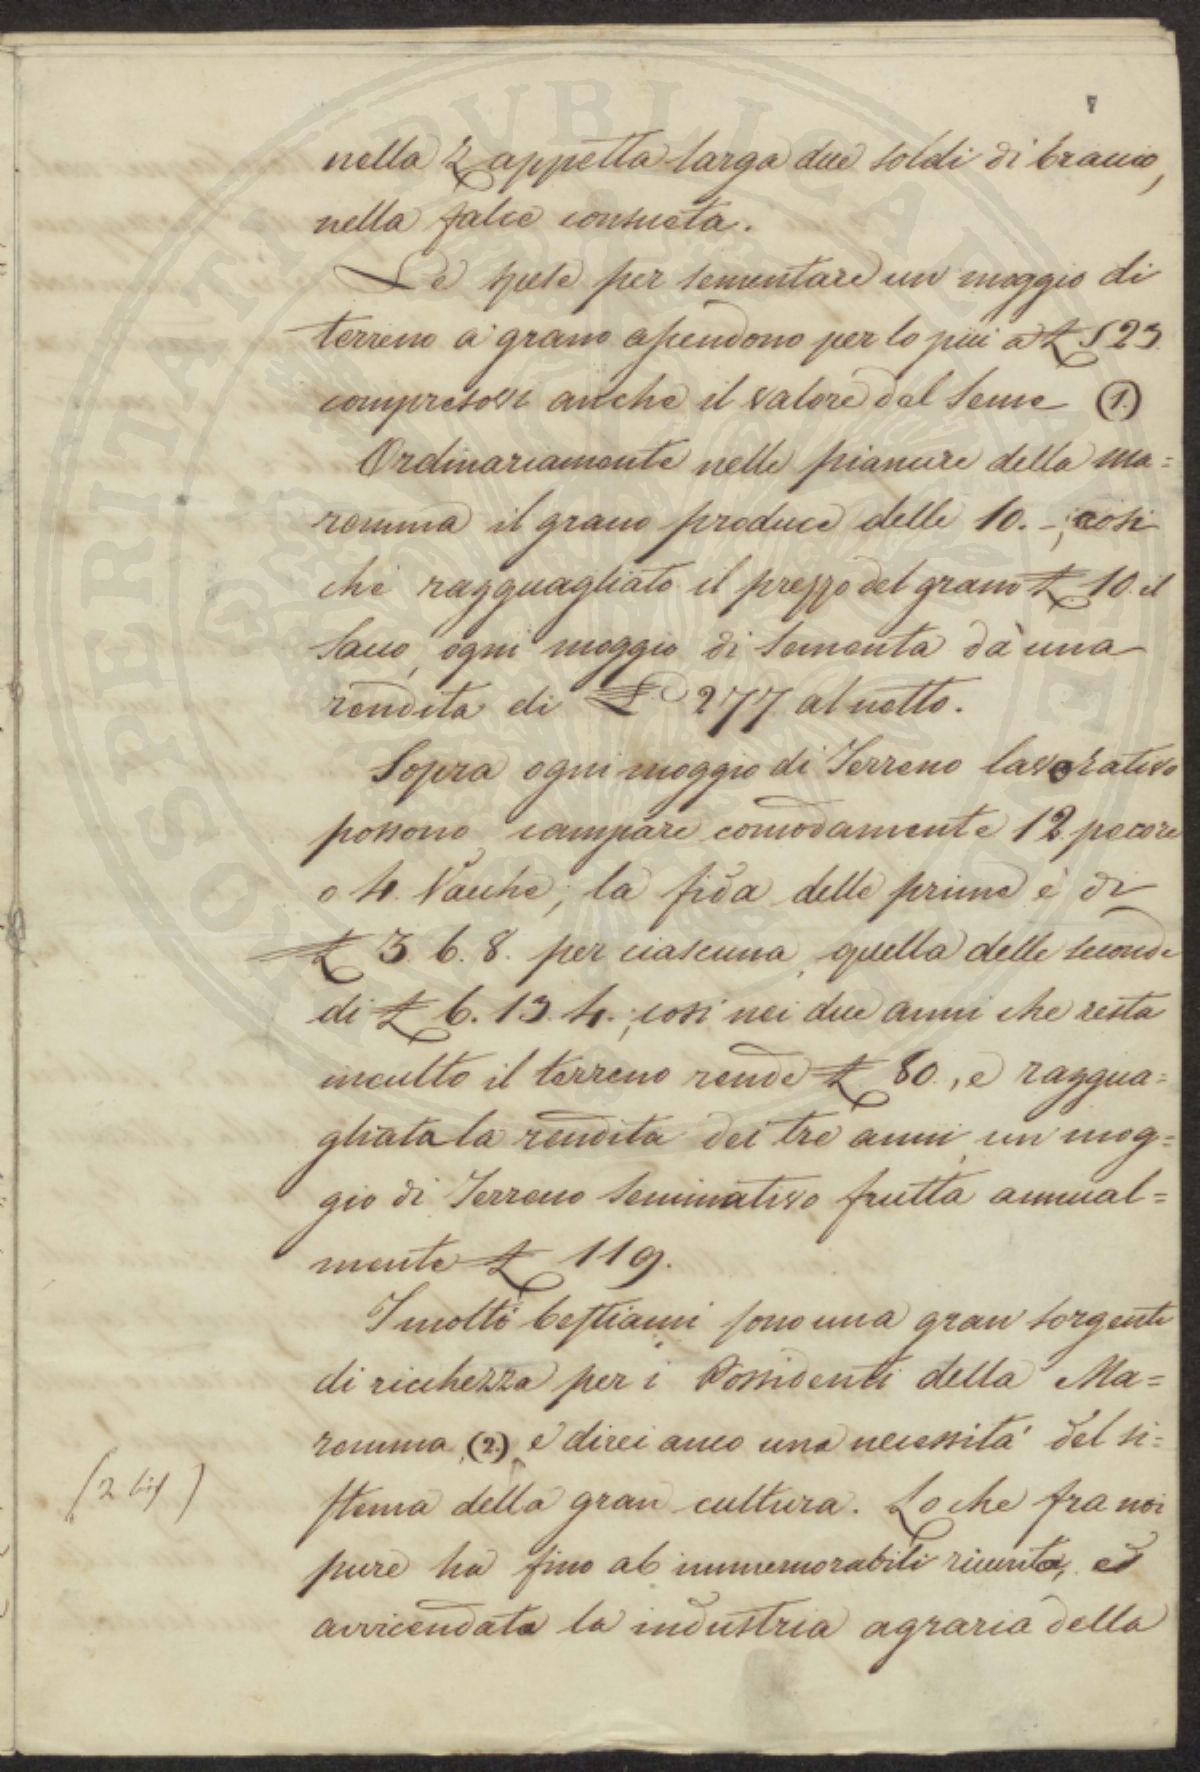 7
nella Zappetta larga due soldi di braccio,
nella falce consueta.
Le spese per sementare un moggio di
terreno a grano ascendono per lo più a £ 523
compresovi anche il valore del Seme (1.)
Ordinariamente nelle pianure della ma=
remma il grano produce delle 10. -; cosi
che ragguagliato il prezzo del grano £ 10. il
Sacco, ogni moggio di Sementa dà una
rendita di £ 277 al netto.
Sopra ogni moggio di Terreno lavorativo
possono campare comodamente 12 pecore
o 4. Vacche; la fida delle prime è di
£ 3. 6. 8. per ciascuna, quella delle seconde
di £ 6. 13. 4.; così nei due anni che resta
incolto il terreno rende £ 80., e raggua=
gliata la rendita dei tre anni, un mog=
gio di Terreno Seminativo frutta annual=
mente £ 119.
I molti bestiami sono una gran sorgente
di ricchezza per i Possidenti della Ma=
remma (2.) e direi anco una necessità del si=
stema della gran cultura. Lo che fra noi
(2 bis)
pure ha fino ab immemorabili ed
avvicendata la industria agraria della